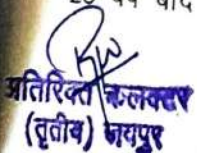 वर्ष बाद
अतिरिक्त कलक्टर
(तृतीय) जयपुर